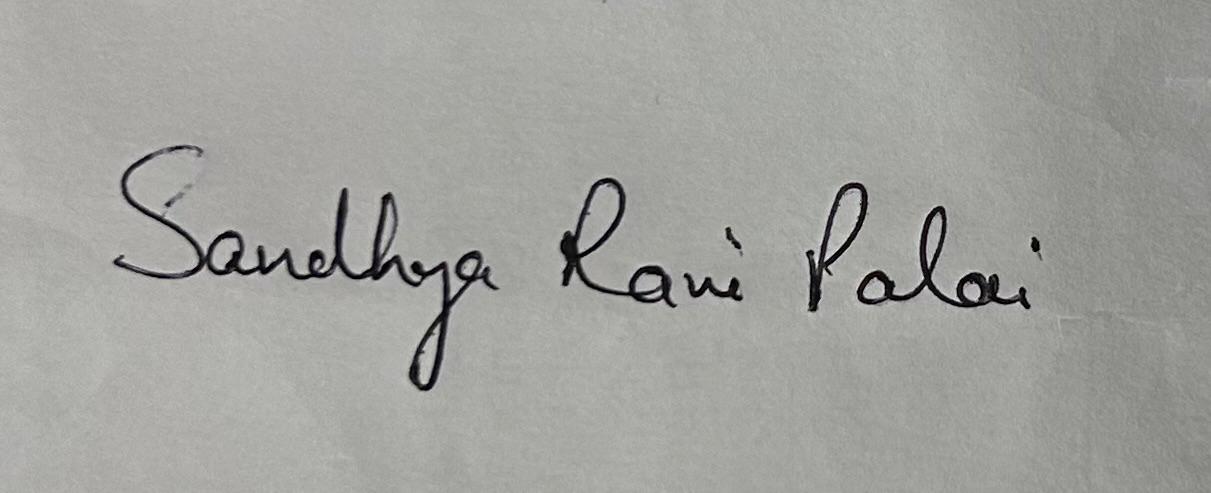 Sandhya Rani Palai